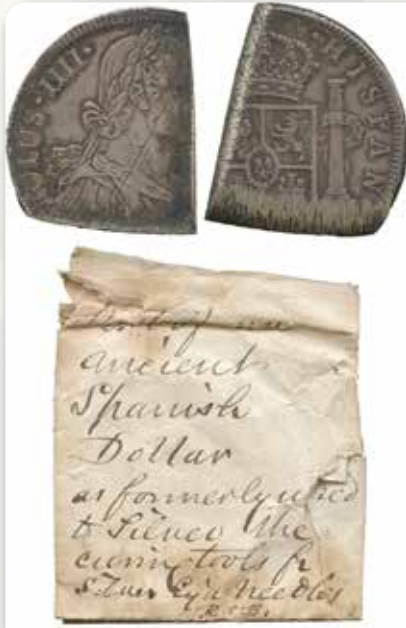 OLUS·IIII·
HISPAN
Part of an
ancient
Spanish
Dollar
as formerly used
to Silver the
tools
Silver Ey'd Needles